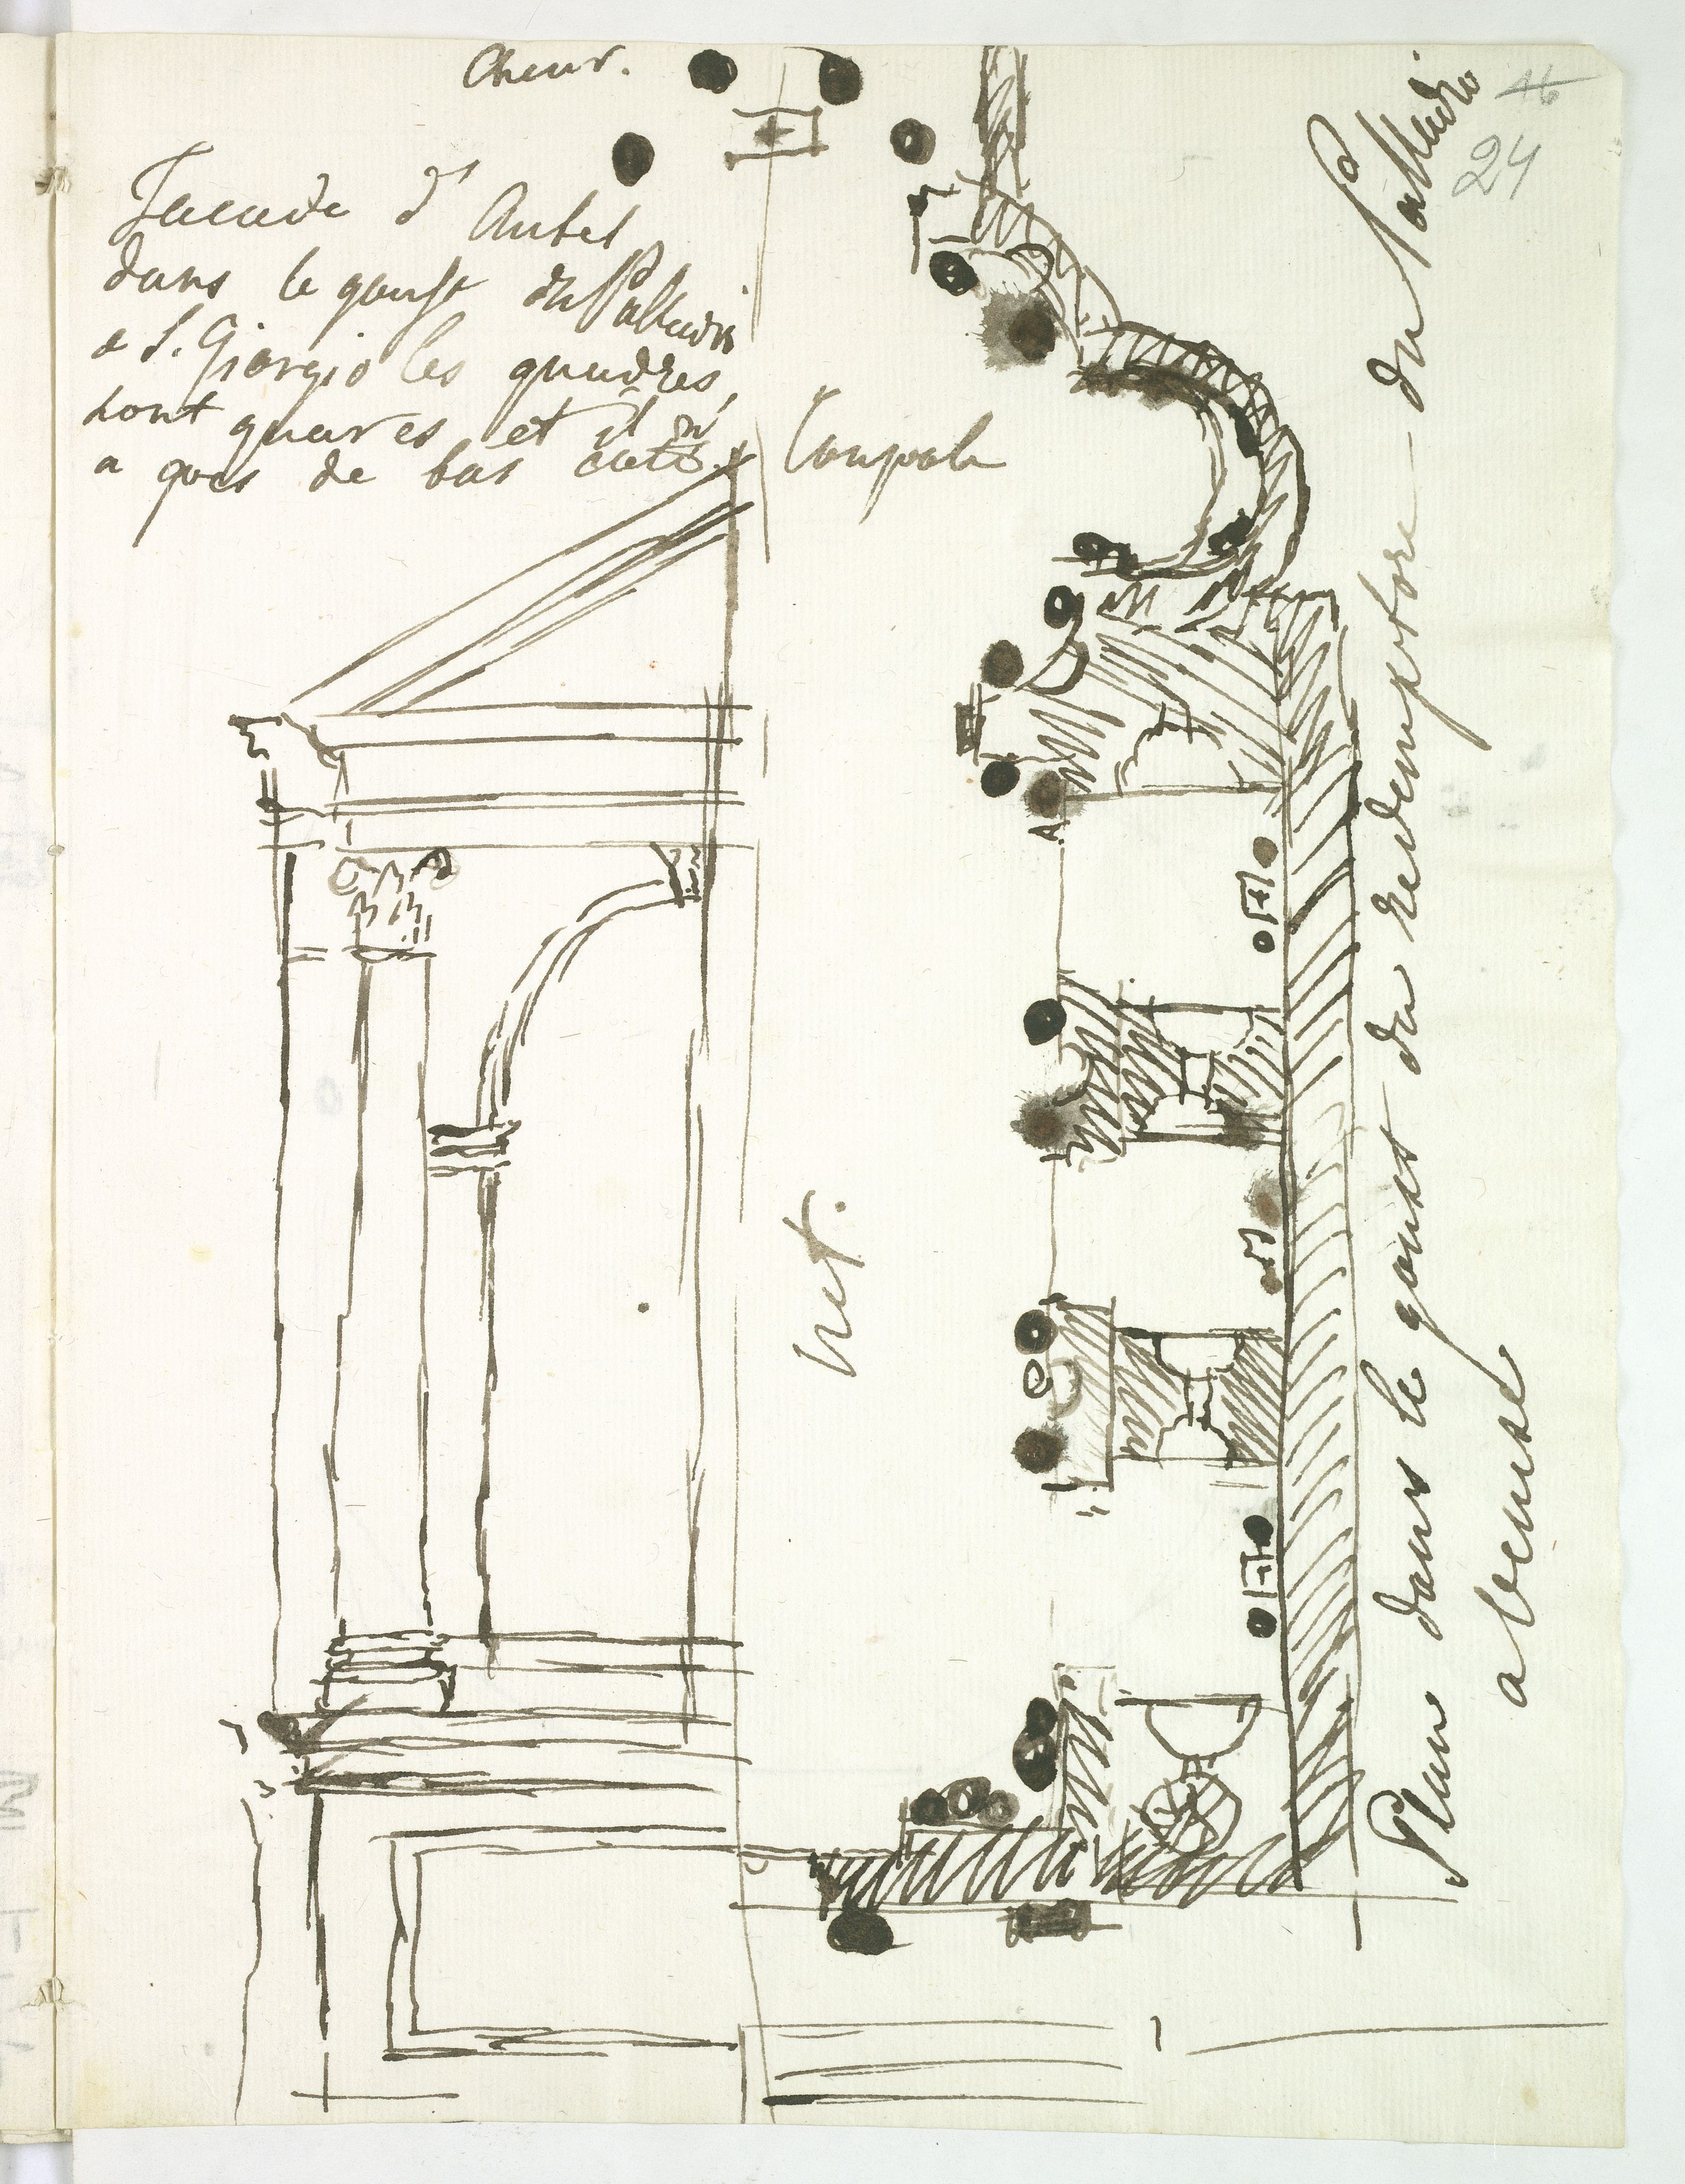 Cheur.
46
24
Facade d'Autel
dans le goust du Palladio
a S. Giorgio les quadres,
sont quares et il n'
a pois de bas cotè.
Coupola
net.
A.
Plan dans le goust du redemptore du Palladio
a Venise